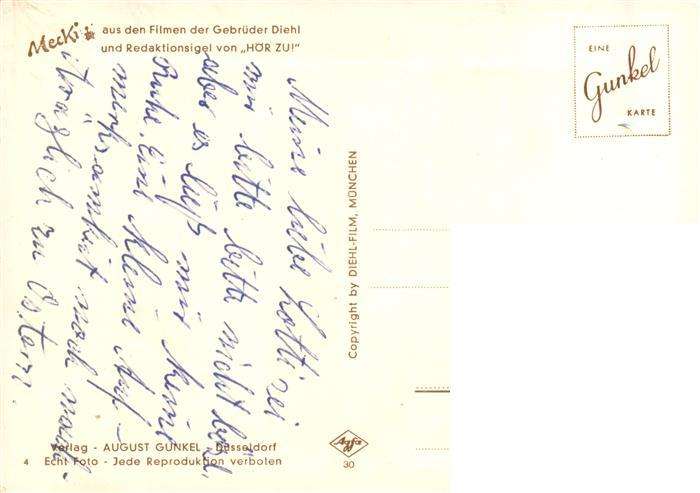 Mecki aus den Filmen der Gebrüder Diehl
und Redaktionsigel von „HÖR ZU!"
EINE
Gunkel
KARTE
Meine liebe Lotti sei
mir bitte bitte nicht bös,
aber es ließ mir keine
Ruhe. Eine kleine Auf-
merksamkeit noch nach-
träglich zu Ostern.
Copyright by DIEHL-FILM, MÜNCHEN
Verlag - AUGUST GUNKEL - Düsseldorf
4 Echt Foto - Jede Reproduktion verboten
Agfa
30